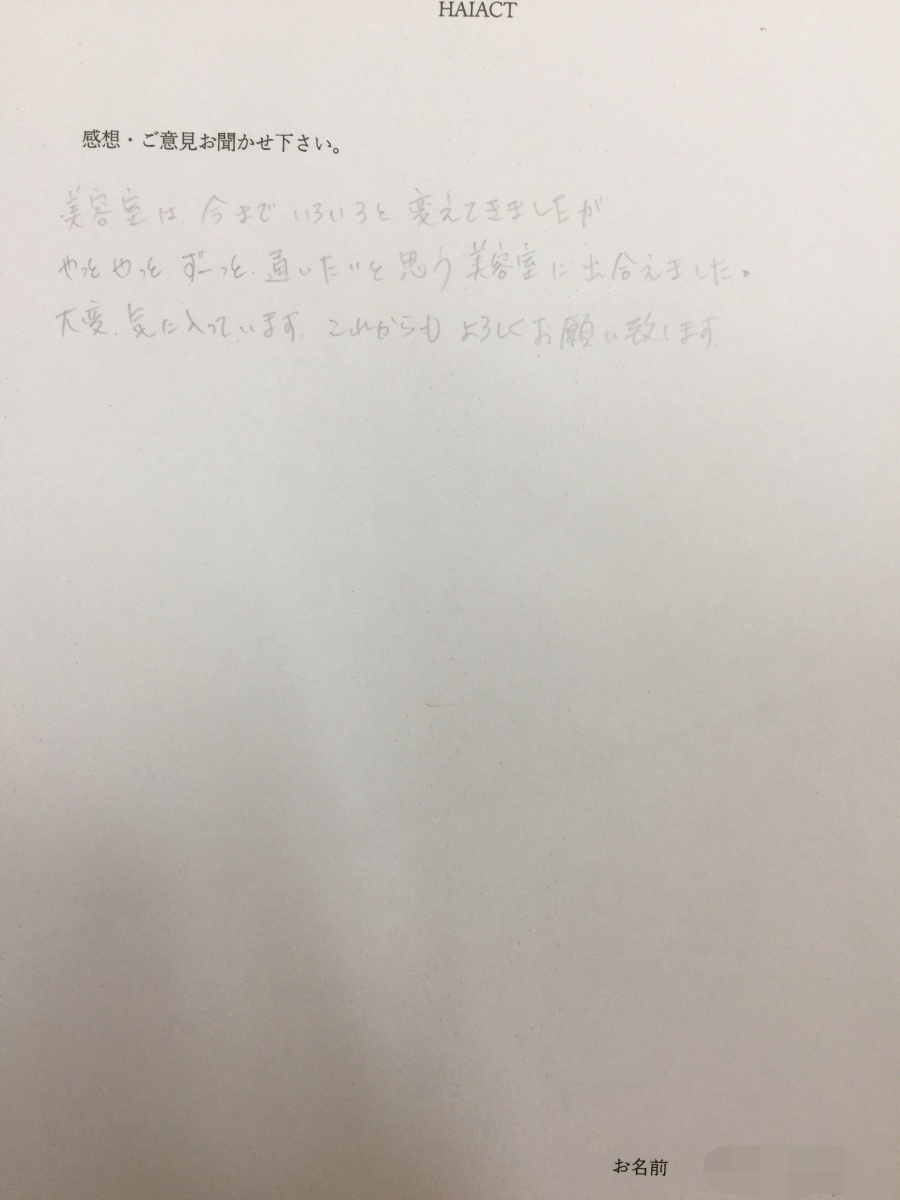 HAIACT
感想・ご意見お聞かせ下さい。
美容室は、今まで いろいろと 変えてきましたが
やっとやっと、ずーっと、通いたいと思う 美容室に出合えました。
大変、気に入っています。これからも よろしくお願い致します。
お名前